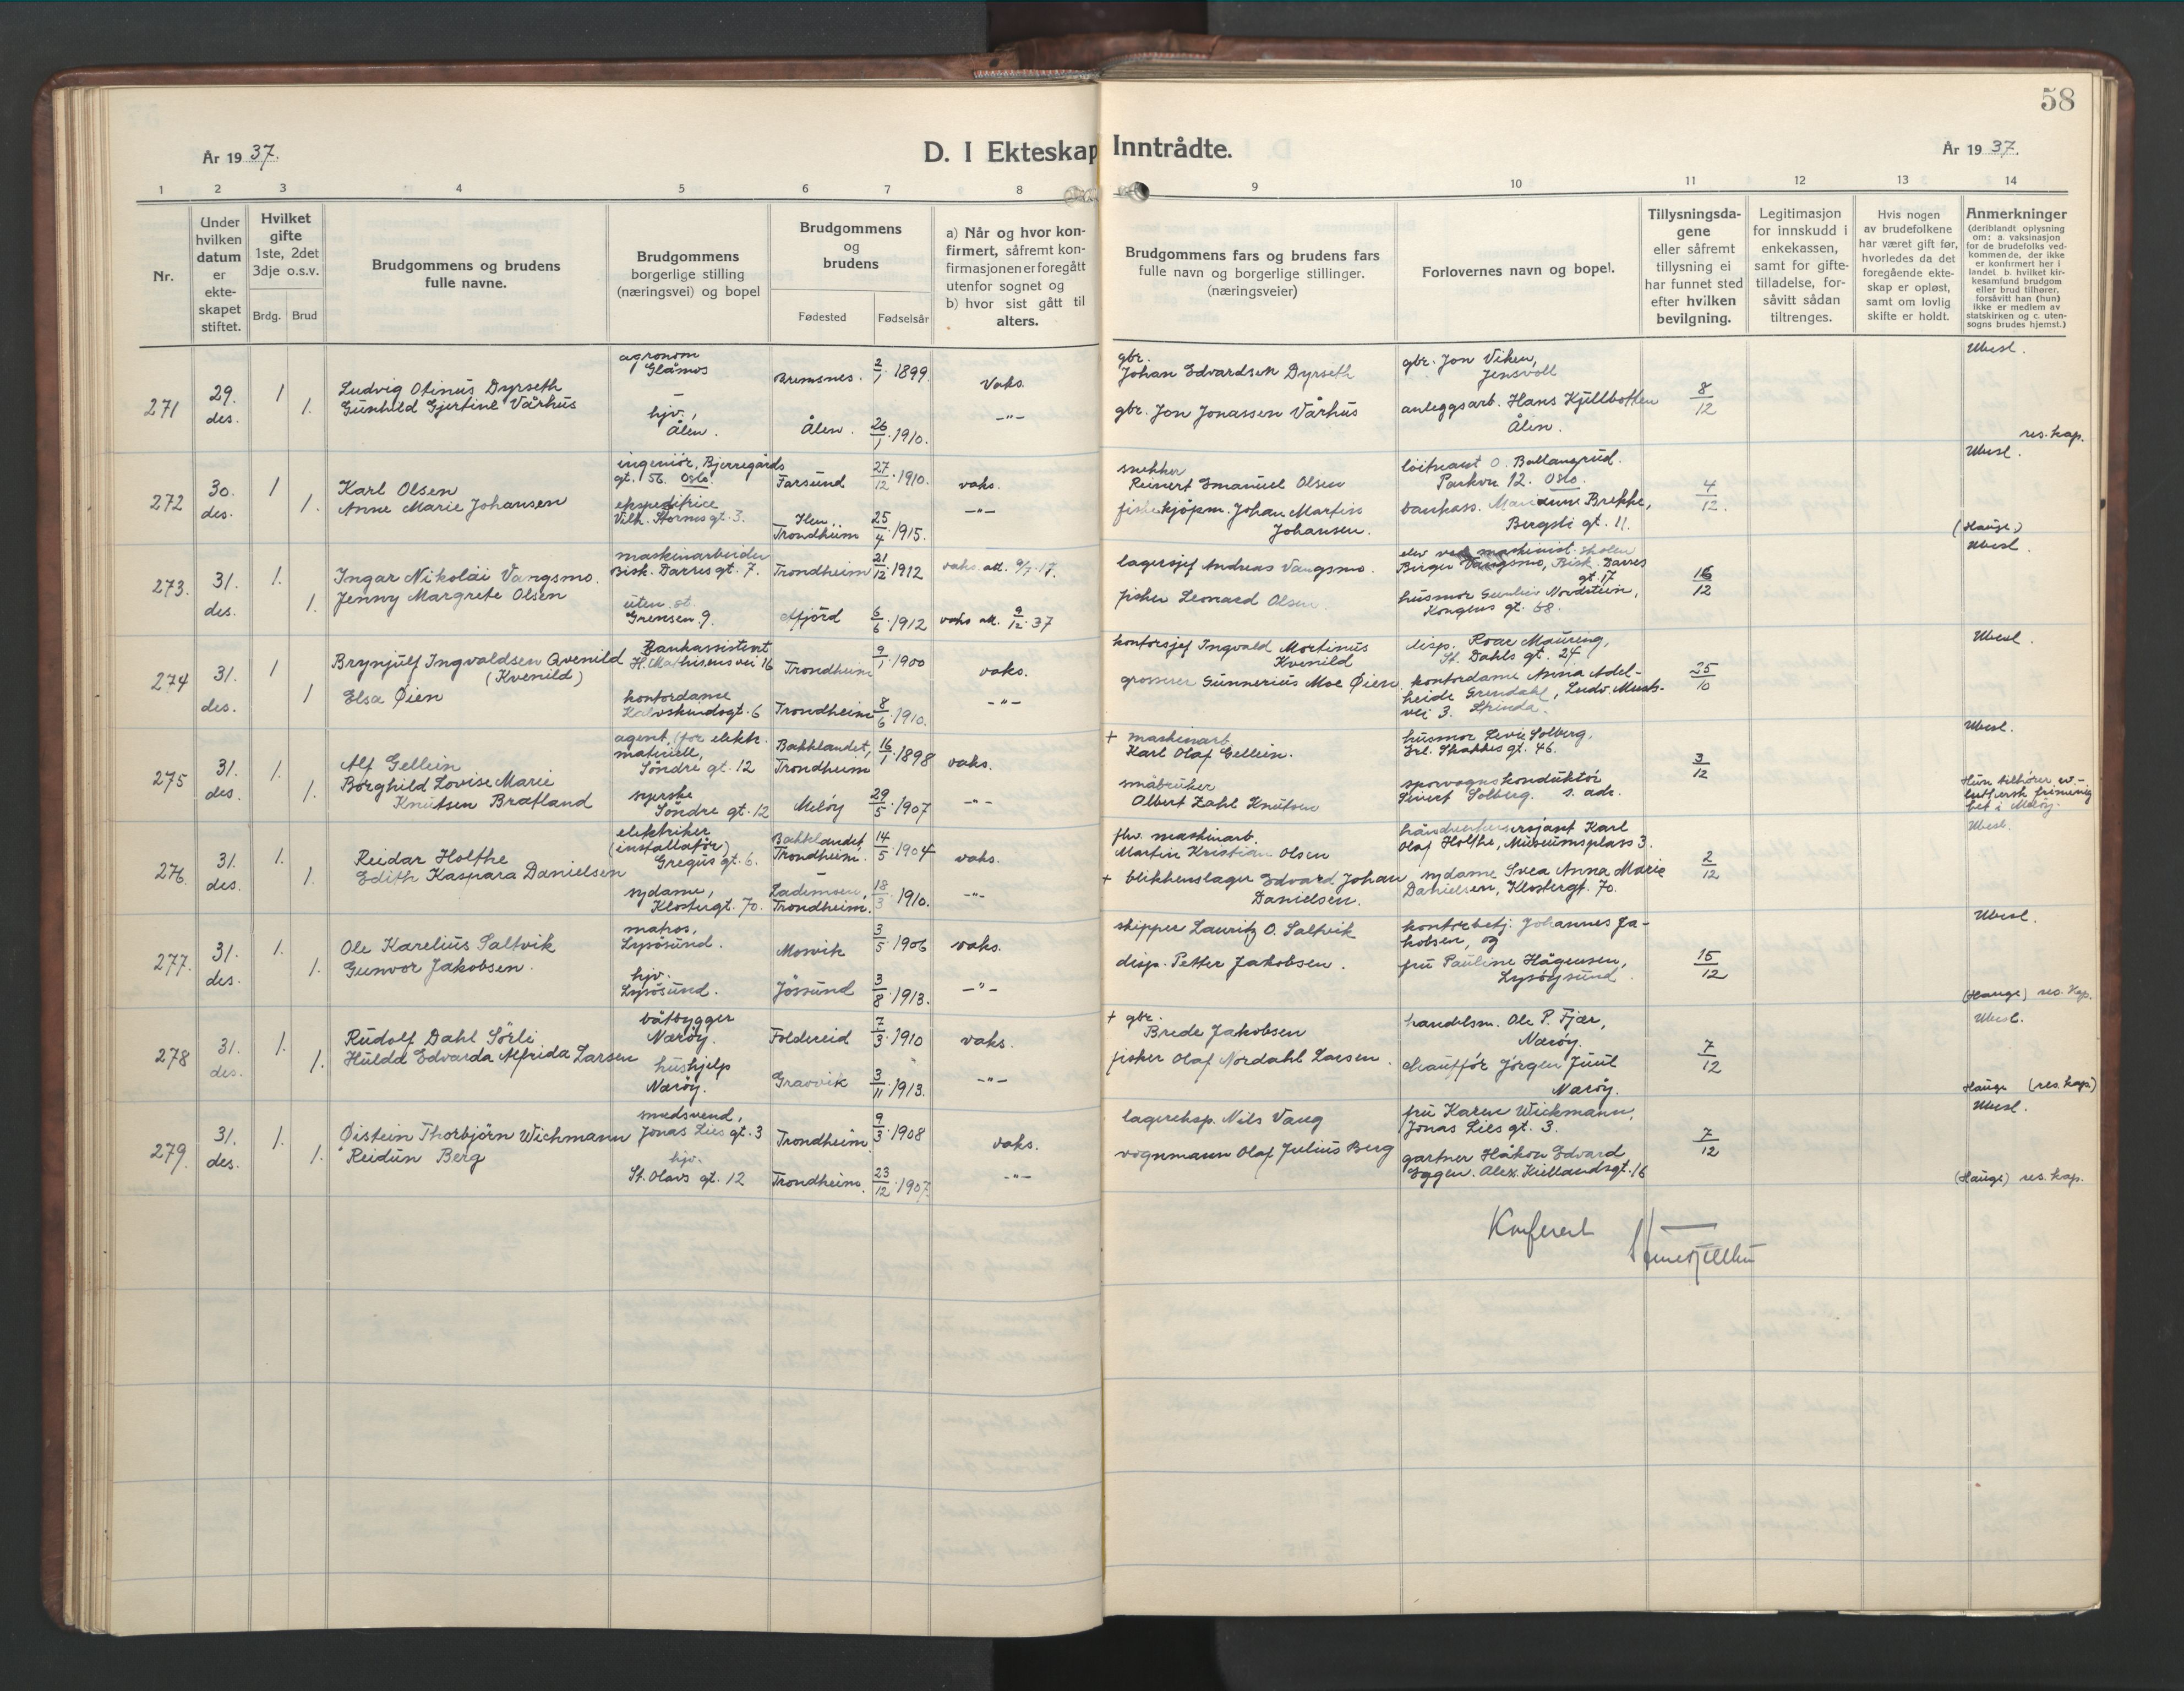 58
År 19 37.
D. I Ekteskap Inntrådte.
År 19 37.
1 2 3 4 5 6 7 8 9 10 11 12 13 14
Nr.
Under hvilken datum er ekteskapet stiftet.
Hvilket gifte 1ste, 2det 3dje o.s.v.
Brdg. Brud
Brudgommens og brudens fulle navne.
Brudgommens borgerlige stilling (næringsvei) og bopel
Brudgommens og brudens
Fødested Fødselsår
a) Når og hvor konfirmert, såfremt konfirmasjonen er foregått utenfor sognet og
b) hvor sist gått til alters.
Brudgommens fars og brudens fars fulle navn og borgerlige stillinger. (næringsveier)
Forlovernes navn og bopel.
Tillysningsdagene eller såfremt tillysning ei har funnet sted efter hvilken bevilgning.
Legitimasjon for innskudd i enkekassen, samt for giftetilladelse, forsåvitt sådan tiltrenges.
Hvis nogen av brudefolkene har været gift før, hvorledes da det foregående ekteskap er opløst, samt om lovlig skifte er holdt.
Anmerkninger (deriblandt oplysning om: a. vaksinasjon for de brudefolks vedkommende, der ikke er konfirmert her i landet b. hvilket kirkesamfund brudgom eller brud tilhører, forsåvitt han (hun) ikke er medlem av statskirken og c. utensogns brudes hjemst.)
271 29. des. 1 1.
Ludvig Otinus Dyrseth
Gunhild Gjertine Vårhus
agronom Glåmos
hjv., Ålen.
Bremsnes. 2/1 1899.
Ålen. 26/1 1910.
Vaks.
-"-
gbr. Johan Edvardsen Dyrseth
gbr. Jon Jonassen Vårhus
gbr. Jon Viken, Jensvoll
anleggsarb. Hans Kjellbotten Ålen.
8/12
res. kap.
272 30. des. 1 1.
Karl Olsen
Anne Marie Johansen
ingeniør, Bjerregårds gt. 56. Oslo.
ekspeditrice Vilh. Storms gt. 3.
Farsund 27/12 1910.
Ilen, Trondheim 25/4 1915.
vaks.
-"-
snekker Reinert Emanuel Olsen
fiskekjøpm. Johan Martin Johansen.
løitnant O. Ballangrud. Parkvn 12. Oslo.
bankass. Marianne Brekke, Bergsli gt. 11.
4/12.
(Hauge.)
273. 31. des. 1. 1.
Ingar Nikolai Vangsmo.
Jenny Margrete Olsen
maskinarbeider Bisk. Darres gt. 7.
uten st. Grensen 9.
Trondheim 21/12 1912
Afjord 6/6 1912
vaks. att. 9/7 17.
vaks att. 9/12 37
lagersjef Andreas Vangsmo.
fisker Leonard Olsen
elev ved maskinist-skolen Birger Vangsmo, Bisk. Darres gt. 17
husmor Gunlaug Nordstein, Kongens gt. 68.
16/12
274 31. des. 1 1
Brynjulf Ingvaldsen Qvenild (Kvenild)
Elsa Øien
Bankassistent H. Mathisens vei 16
kontordame Kalvskindsgt. 6
Trondheim 9/1 1900
Trondheim 8/6 1910.
vaks.
-"-
kontorsjef Ingvald Mortinus Kvenild
grosserer Gunnerius Moe Øien
disp. Roar Maureng, St. Dahls gt. 24
kontordame Anna Adelheide Grendahl, Ludv. Musts vei 3. Strinda.
25/10
275 31. des. 1. 1.
Alf Gellein
Borghild Lovise Marie Knutsen Bratland
agent (for elektr. materiell, Söndre gt. 12
syerske Söndre gt. 12
Bakklandet, Trondheim 16/1 1898
Meløy 29/5 1907
vaks.
-"-
+ maskinarb. Karl Olaf Gellein.
småbruker Albert Zahl Knutsen
husmor Levie Solberg, Erl. Skakkes gt. 46.
sporvognskonduktör Sivert Solberg. s. adr.
3/12
Hun tilhører ev.-luthersk frimenighet i Meløy.
276. 31. des. 1. 1.
Reidar Holthe
Edith Kaspara Danielsen
elektriker (installatör) Gregus gt. 6.
sydame, Klostergt. 70.
Bakklandet, Trondheim. 14/5 1904
Lademoen, Trondheim. 18/3 1910.
vaks.
-"-
fhv. maskinarb. Martin Kristian Olsen
+ blikkenslager Edvard Johan Danielsen.
håndverkersersjant Karl Olaf Holthe, Museumsplass 3.
sydame Svea Anna Marie Danielsen, Klostergt. 70.
2/12
277. 31. des. 1. 1.
Ole Karelius Saltvik
Gunvor Jakobsen.
matros, Lysösund.
hjv. Lysösund.
Mosvik 3/5 1906
Jössund 3/8 1913.
vaks.
-"-
skipper Lauritz O. Saltvik
disp. Petter Jakobsen.
kontorbetj. Johannes Jakobsen, og
fru Pauline Hågensen, Lysöysund.
15/12
(Hauge) res. kap.
278 31. des. 1. 1.
Rudolf Dahl Sörli
Hulda Edvarda Alfrida Larsen
båtbygger Nærøy.
hushjelp Nærøy.
Foldereid 7/3 1910
Gravvik 3/11 1913.
vaks.
-"-
+ gbr. Brede Jakobsen
fisker Olaf Nordahl Larsen.
handelsm. Ole P. Fjær, Nærøy.
chauffør Jørgen Juul Nærøy.
7/12
Hauge (res. kap.)
279. 31. des. 1. 1.
Øistein Thorbjörn Wichmann
Reidun Berg
Jonas Lies gt. 3
hjv. St. Olavs gt. 12
Trondheim 9/3 1908
Trondheim. 23/12 1907.
vaks.
-"-
lagereksp. Nils Vaug
vognmann Olaf Julius Berg
fru Karen Wickmann, Jonas Lies gt. 3.
gartner Håkon Edvard Eggen. Alex. Kiellandsgt. 16
7/12
(Hauge) res. kap.
Konferert